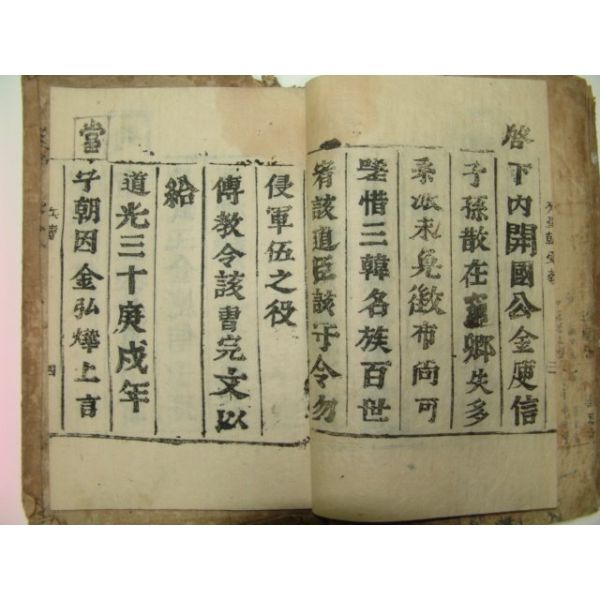 啓下內開國公金庾信
子孫散在鄉失多
系派未免徵布尚可
惜三韓名族百世
者該道臣該守令勿
侵軍伍之役
傳教令該曹完文以
給
道光三十庚戌年
當宁朝因金弘燁上言
四